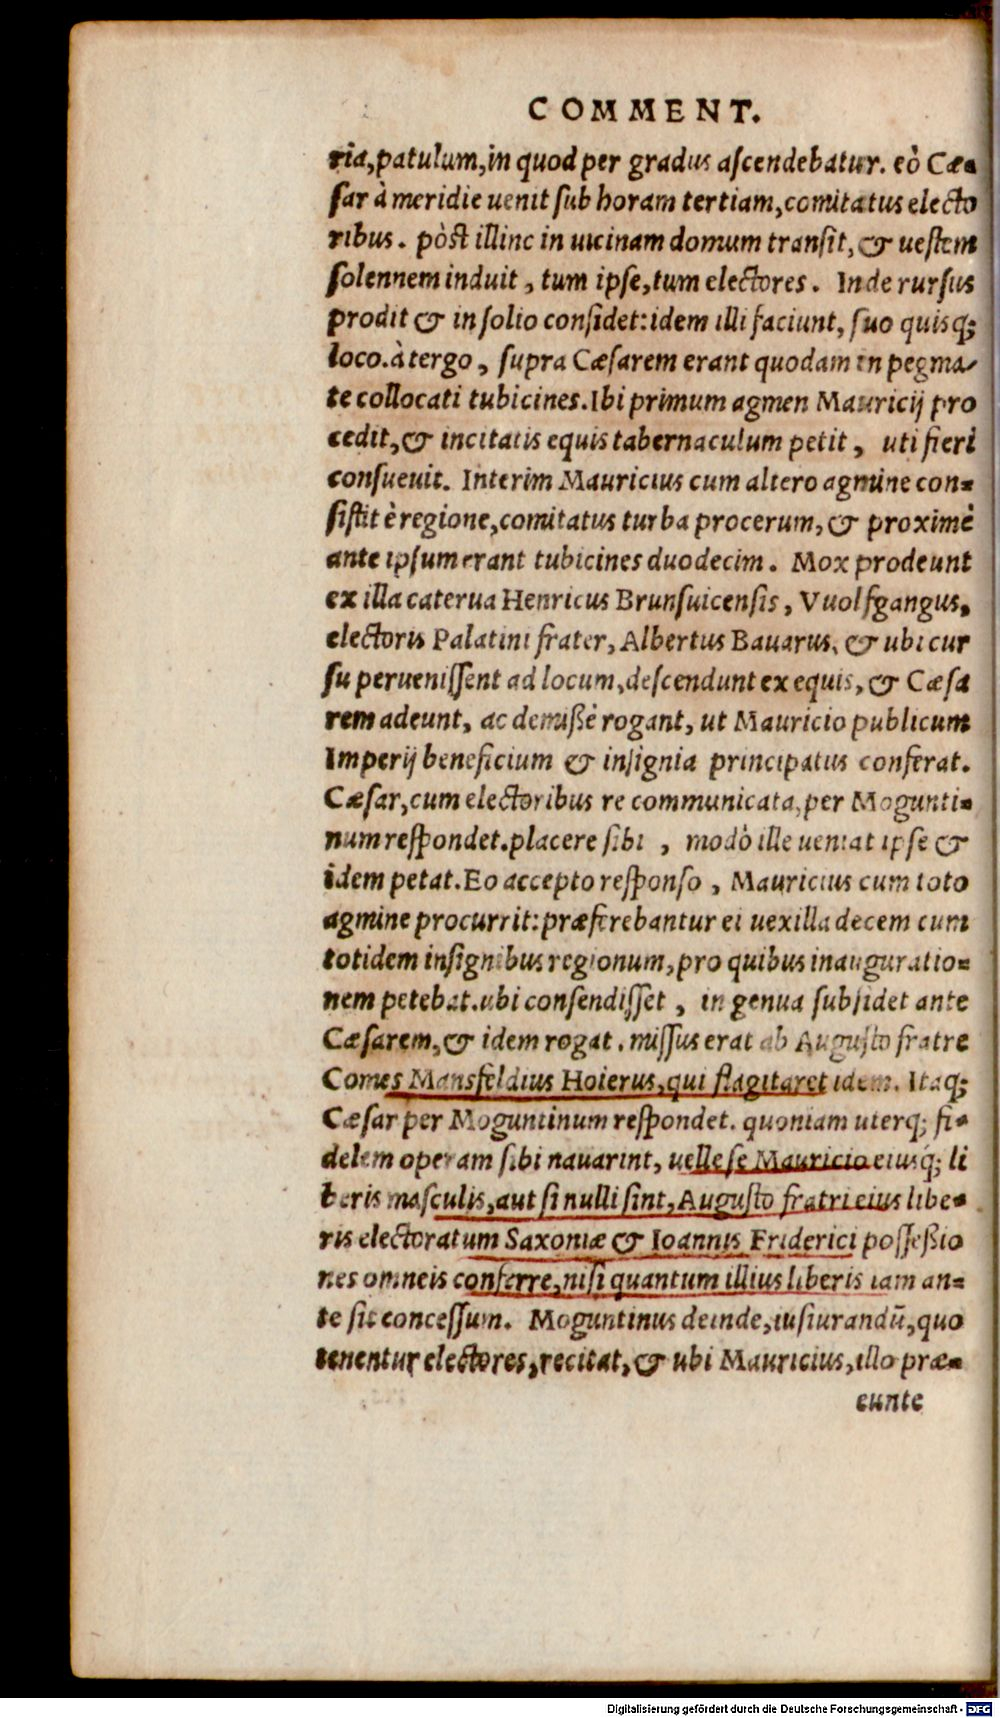 COMMENT.
ria, patulum, in quod per gradus ascendebatur. eò Cæ-
sar à meridie uenit sub horam tertiam, comitatus electo
ribus. pòst illinc in uicinam domum transit, & uestem
solennem induit, tum ipse, tum electores. Inde rursus
prodit & in solio considet: idem illi faciunt, suo quisq;
loco. à tergo, supra Cæsarem erant quodam in pegma-
te collocati tubicines. Ibi primum agmen Mauricij pro
cedit, & incitatis equis tabernaculum petit, uti fieri
consueuit. Interim Mauricius cum altero agmine con-
sistit è regione, comitatus turba procerum, & proximè
ante ipsum erant tubicines duodecim. Mox prodeunt
ex illa caterua Henricus Brunsuicensis, Vuolfgangus,
electoris Palatini frater, Albertus Bauarus, & ubi cur
su peruenissent ad locum, descendunt ex equis, & Cæsa
rem adeunt, ac demißè rogant, ut Mauricio publicum
Imperij beneficium & insignia principatus conferat.
Cæsar, cum electoribus re communicata, per Mogunti-
num respondet. placere sibi, modò ille ueniat ipse &
idem petat. Eo accepto responso, Mauricius cum toto
agmine procurrit: præferebantur ei uexilla decem cum
totidem insignibus regionum, pro quibus inauguratio-
nem petebat. ubi consendisset, in genua subsidet ante
Cæsarem, & idem rogat. missus erat ab Augusto fratre
Comes Mansfeldius Hoierus, qui flagitaret idem. Itaq;
Cæsar per Moguntinum respondet. quoniam uterq; fi-
delem operam sibi nauarint, uelle se Mauricio eiusq́; li
beris masculis, aut si nulli sint, Augusto fratri eius libe-
ris electoratum Saxoniæ & Ioannis Friderici possessio
nes omneis conferre, nisi quantum illius liberis iam an-
te sit concessum. Moguntinus deinde, iusiurandũ, quo
tenentur electores, recitat, & ubi Mauricius, illo præ-
eunte
Digitalisierung gefördert durch die Deutsche Forschungsgemeinschaft - DFG